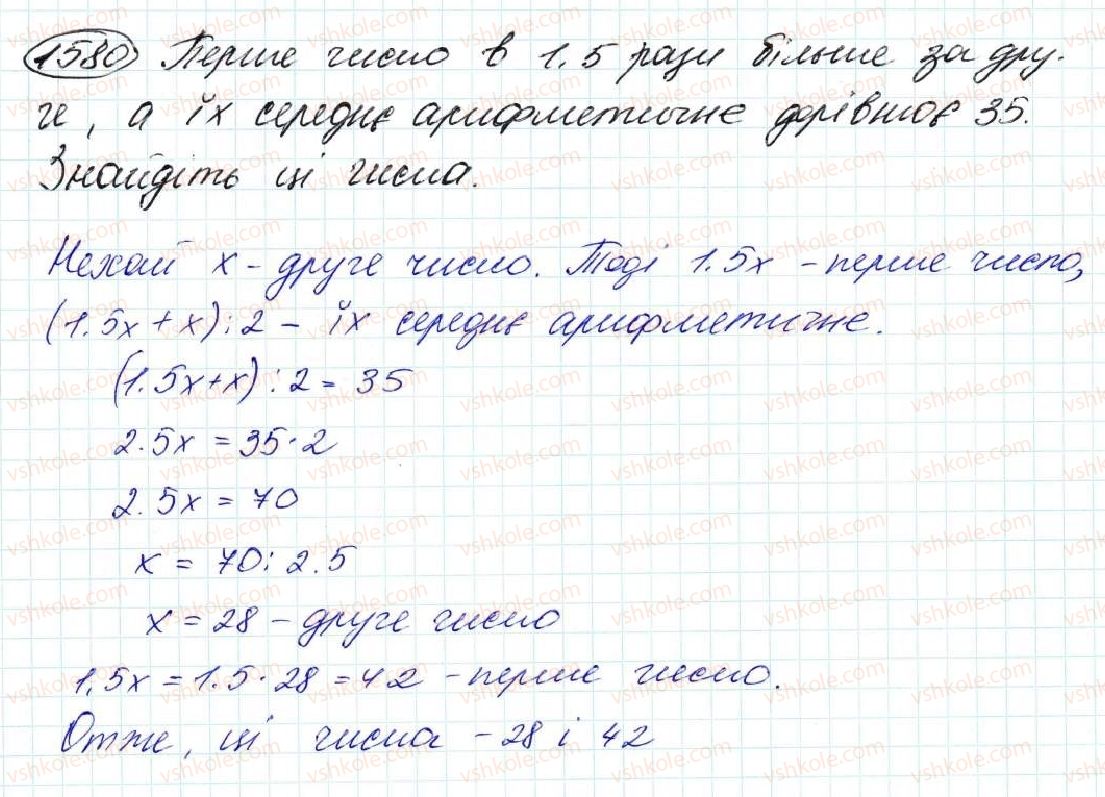 1580 Перше число в 1.5 рази більше за дру-
ге, а їх середнє арифметичне дорівнює 35.
Знайдіть ці числа.
Нехай x - друге число. Тоді 1.5x - перше число,
(1.5x + x) : 2 - їх середнє арифметичне.
(1.5x + x) : 2 = 35
2.5x = 35 · 2
2.5x = 70
x = 70 : 2.5
x = 28 - друге число
1,5x = 1.5 · 28 = 42 - перше число.
Отже, ці числа - 28 і 42
vshkole.com